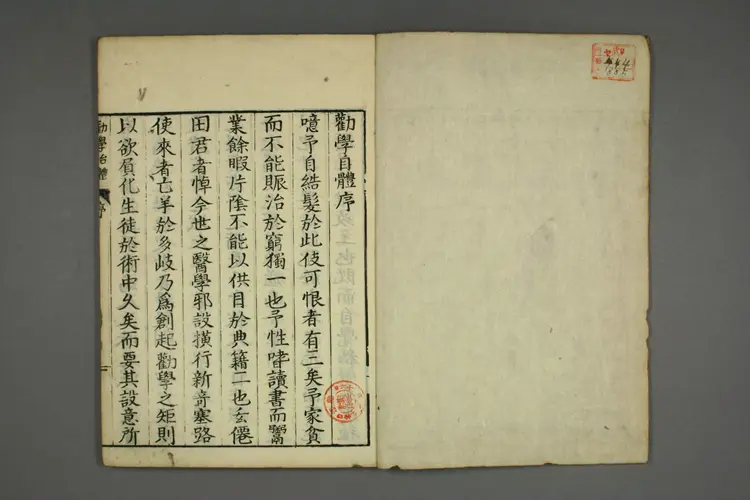 勸學自體序
噫予自結髮於此伎可恨者有三矣予家貧
而不能賑治於窮獨一也予性嗜讀書而鬻
業餘暇片陰不能以供目於典籍二也玄僊
田君者悼今世之醫學邪說横行新奇塞路
使來者亡羊於多岐乃爲創起勸學之矩則
以欲屓化生徒於術中久矣而要其設意所
勸學治體
序